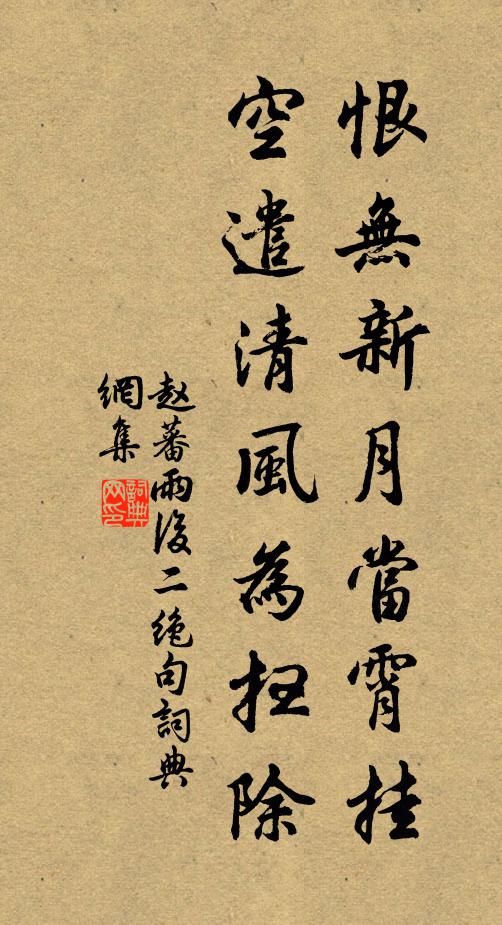 恨無新月當霄挂
空遣清風為扫除
赵蕃雨後二絶句詞典
網集
詞典
网印